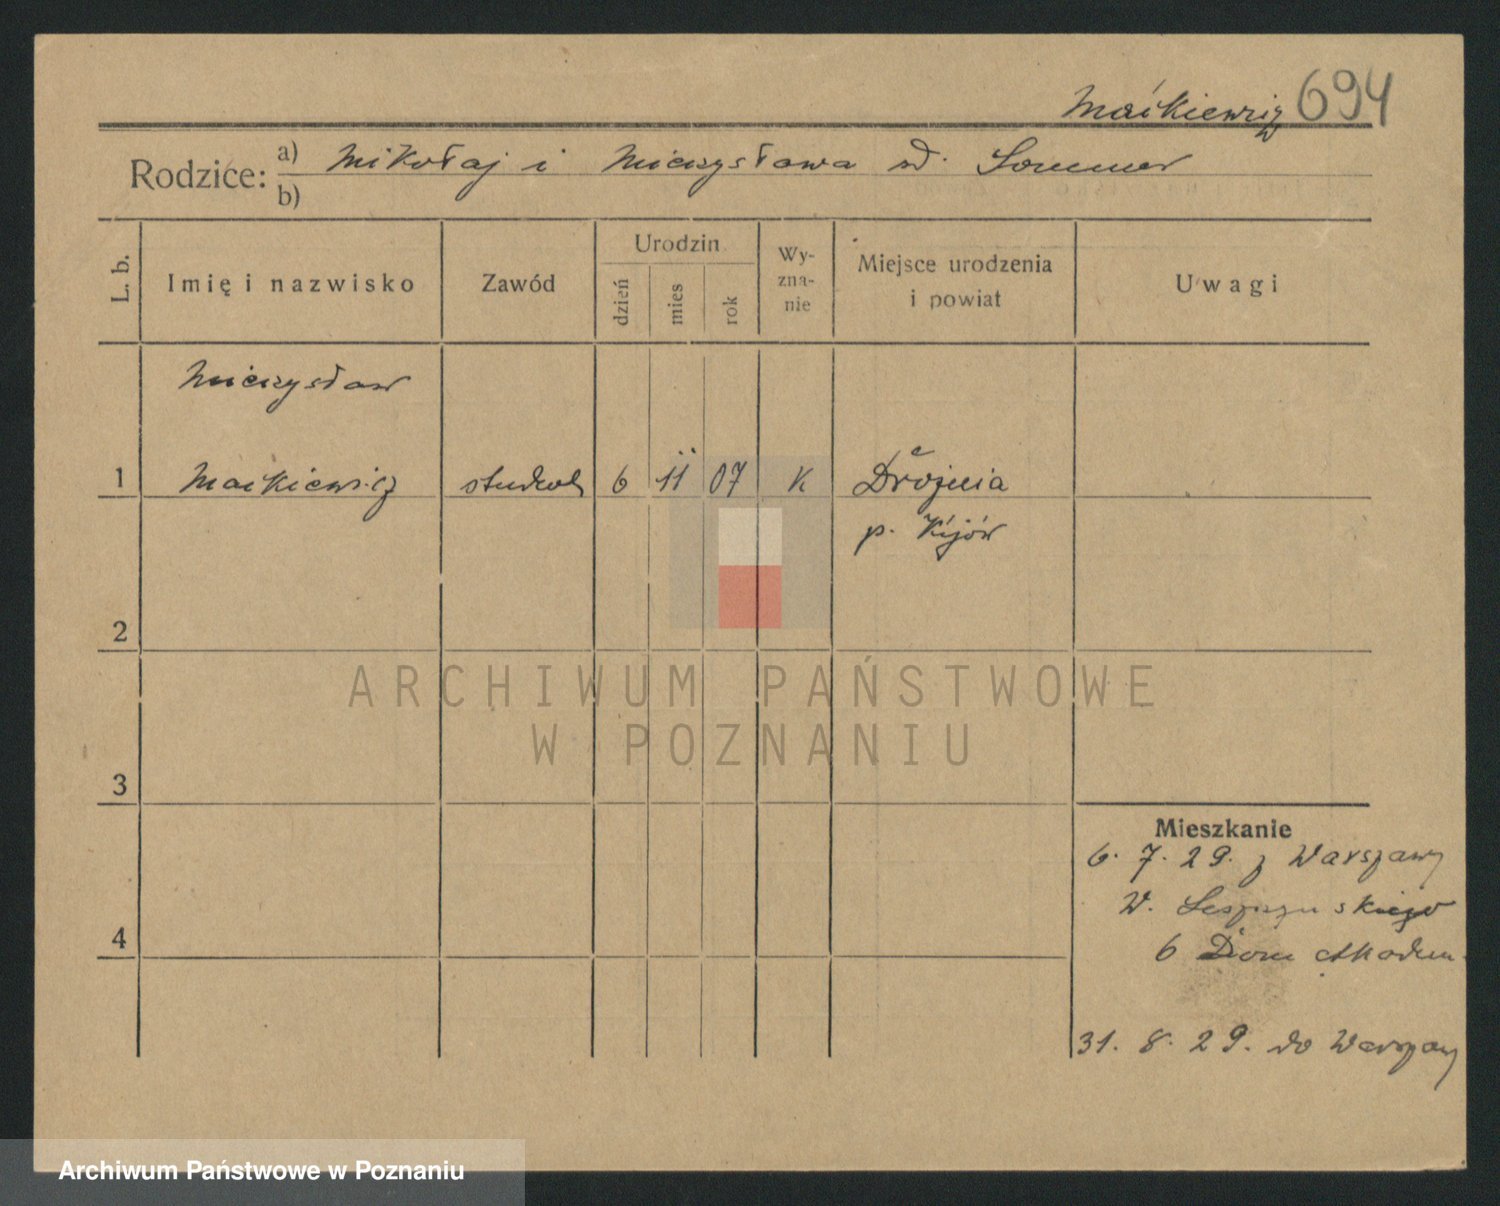 Maćkiewicz 694
Rodzice: a) Mikołaj i Mieczysława ud. Sommer
b)
L. b. Imię i nazwisko Zawód Urodzin dzień mies rok Wy-zna-nie Miejsce urodzenia i powiat Uwagi
Mieczysław
1 Maćkiewicz student 6 11 07 K
p. Kijów
2
ARCHIWUM PAŃSTWOWE
W POZNANIU
3
Mieszkanie
6. 7. 29. z Warszawy
W.
4
6 Dom Akadem.
31. 8. 29. do Warszawy
Archiwum Państwowe w Poznaniu